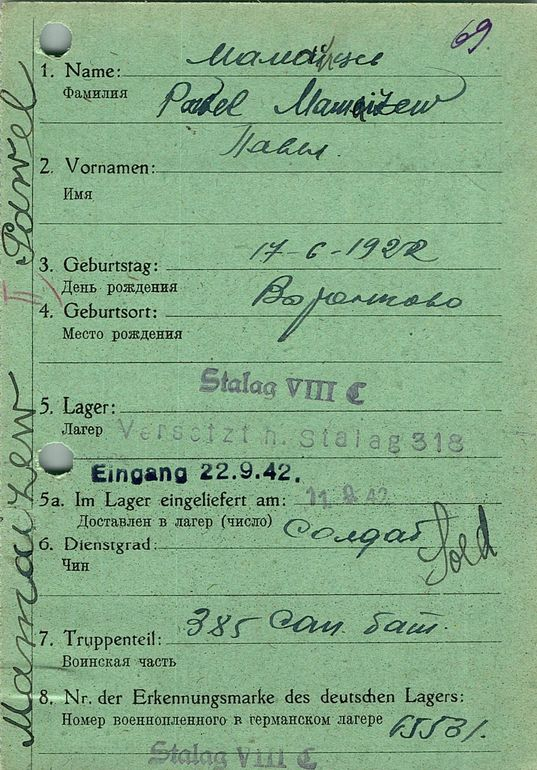 69.
1. Name:
Фамилия
Pavel
Павел
2. Vornamen:
Имя
17-6-1922
3. Geburtstag:
День рождения
4. Geburtsort:
Место рождения
Stalag VIII C
5. Lager:
Лагер
Versetzt n. Stalag 318
Eingang 22.9.42.
5a. Im Lager eingeliefert am: 11 9 42
Доставлен в лагер (число)
6. Dienstgrad: Солдат Sold
Чин
385 Сап. бат.
7. Truppenteil:
Воинская часть
8. Nr. der Erkennungsmarke des deutschen Lagers:
Номер военнопленного в германском лагере
Stalag VIII C
Mamaizew
II
Pawel